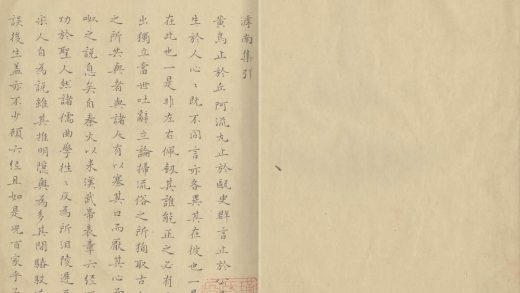 滹南集引
黃鳥止於丘阿流丸止於甌臾群言止於公
生於人心心既不同言亦各異其在彼也一是
在此也一是非左右佩劔其誰能正之必有
出獨立當世吐辭立論掃流俗之所徇取古
之所共與者與諸人有以塞其口而厭其心而
呶之說息矣自秦火以来漢武帝表章六經
功於聖人然諸儒曲學往往反為所汨陵遲至
宗人自為說雖其推明隱奥為多其間駁
誤後生蓋亦不少顧六經且如是况百家乎